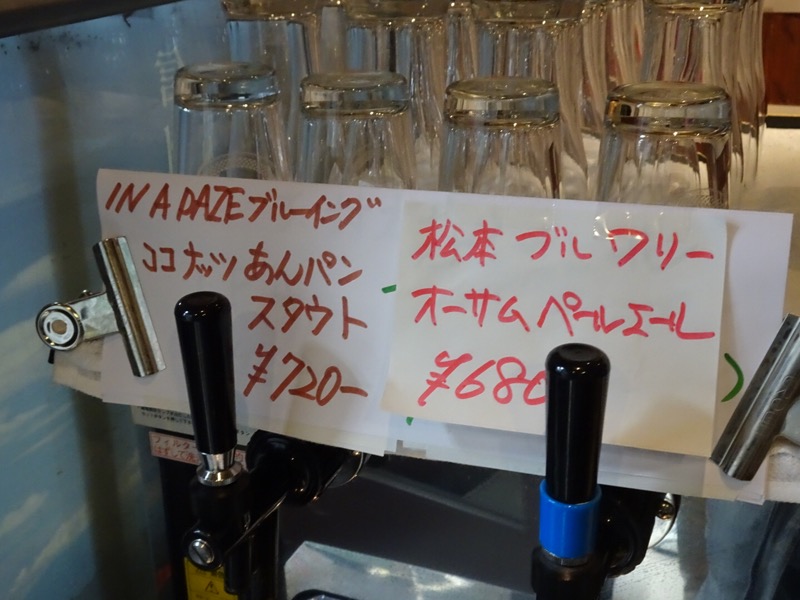 IN A DAZEブルーイング
ココナッツあんパン
スタウト
¥720-
松本ブルワリー
オーサムペールエール
¥680
フィルター